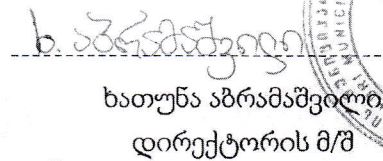 ხ. აბრამაშვილი
ხათუნა აბრამაშვილი
დირექტორის მ/შ